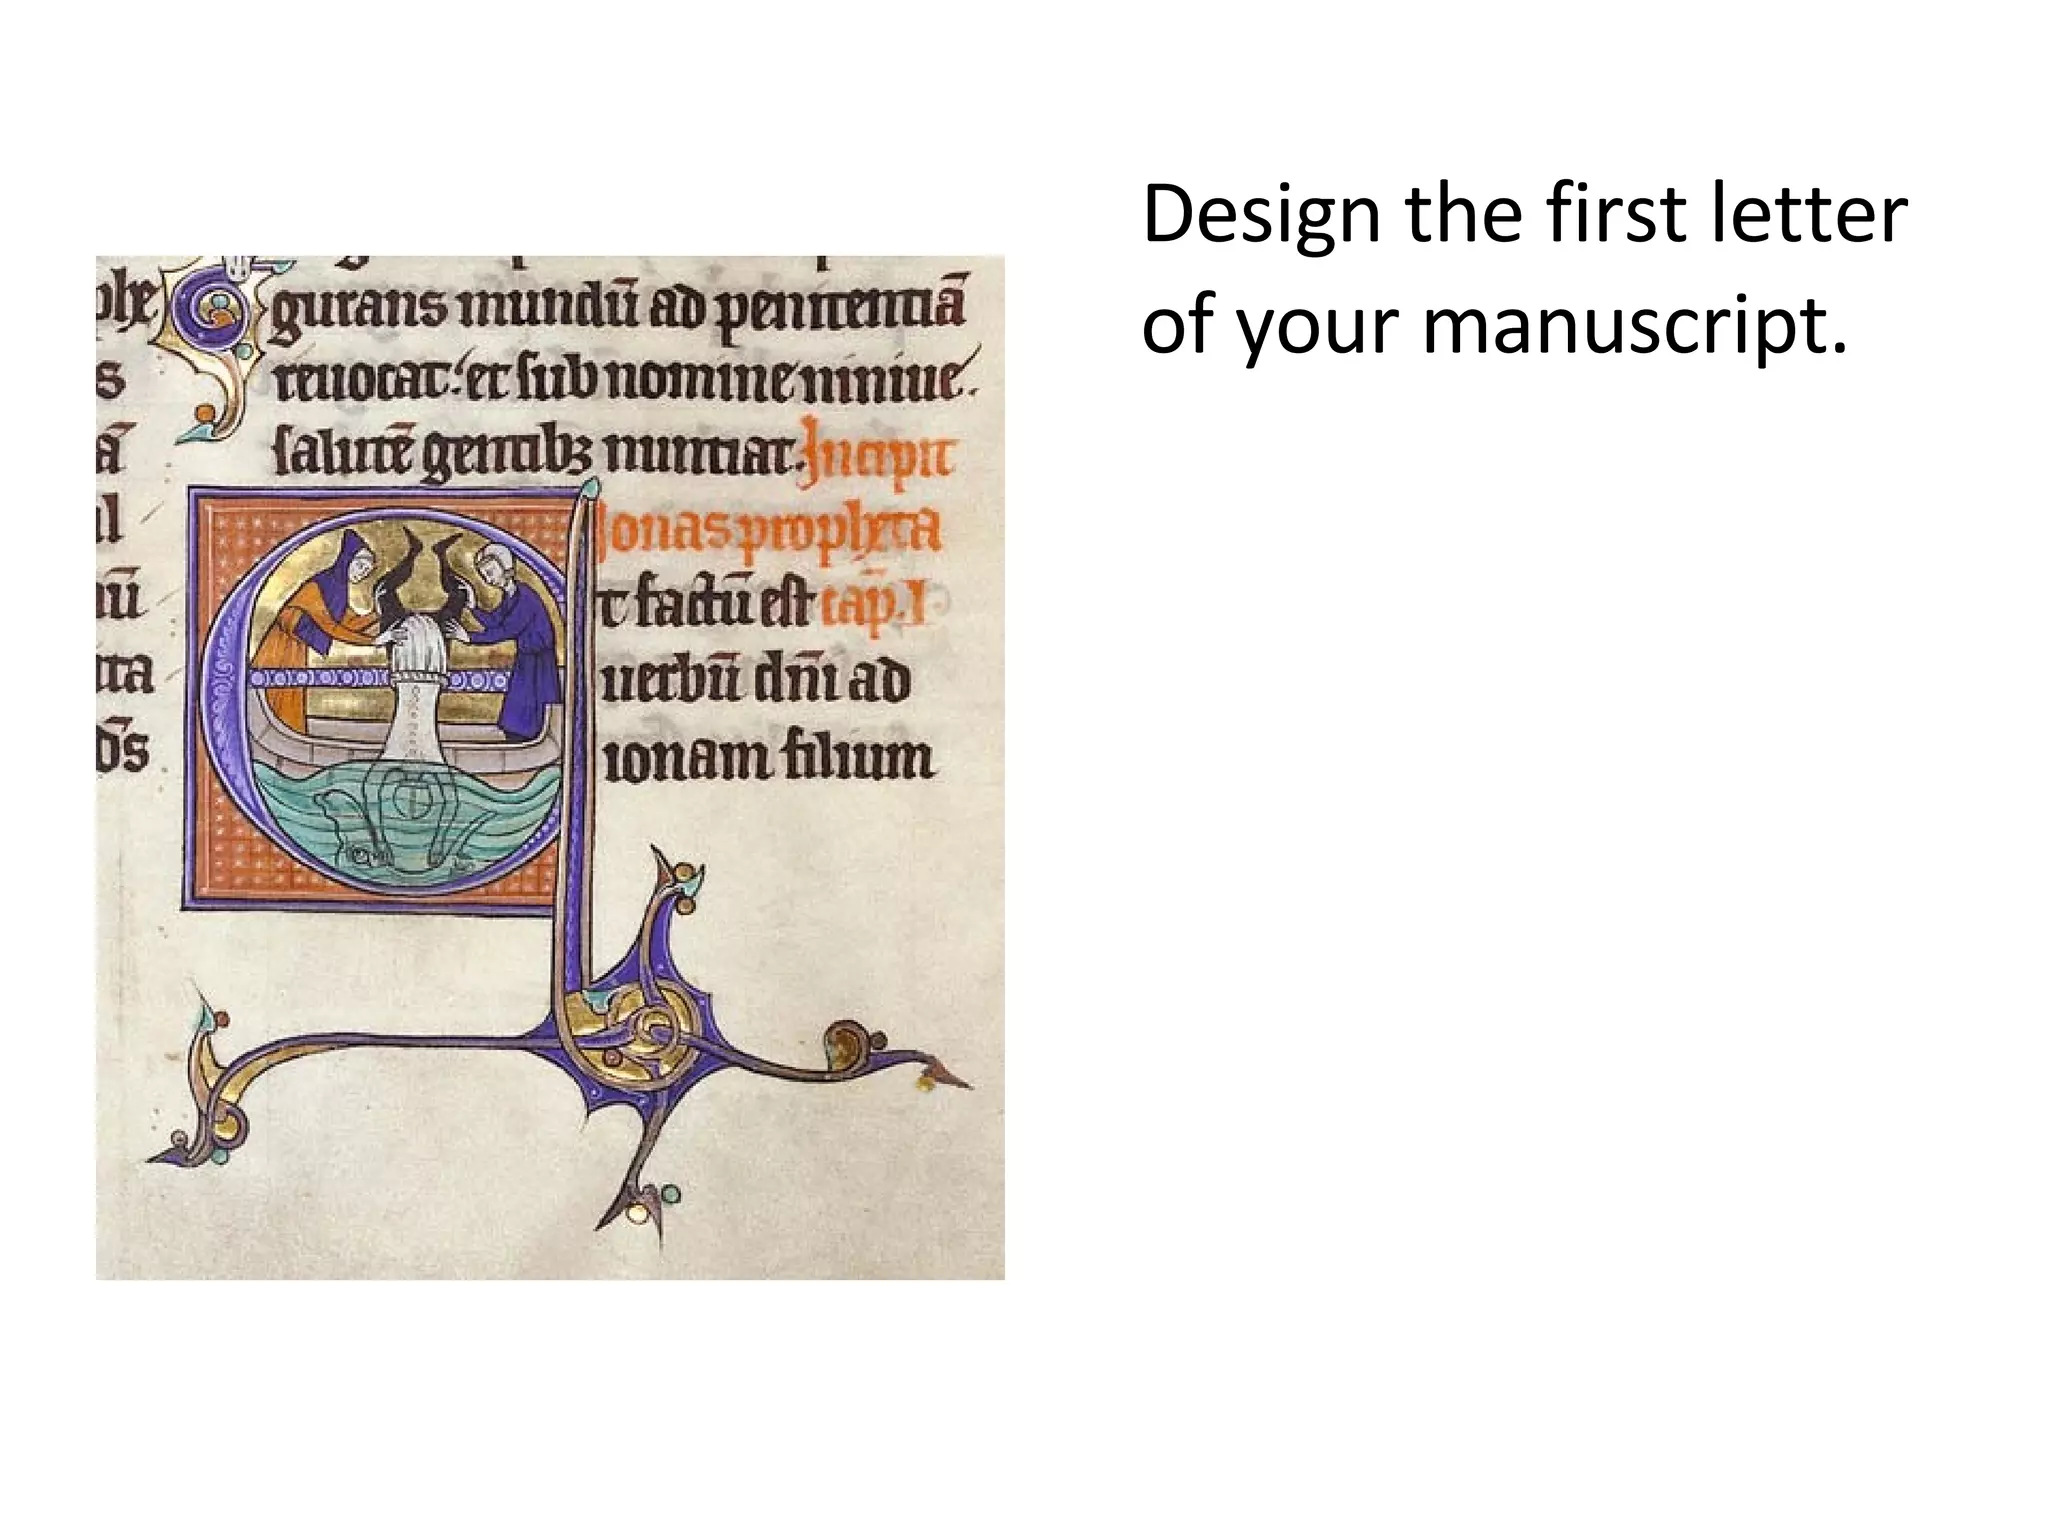 Design the first letter
of your manuscript.
phe
gurans mundū ad penitentiā
s
reuocat: et sub nomine niniue.
ā
salutē gentibꝫ nuntiat. Incipit
ul
Ionas propheta
t factū est cap̄. I
uerbū dn̄i ad
ionam filium